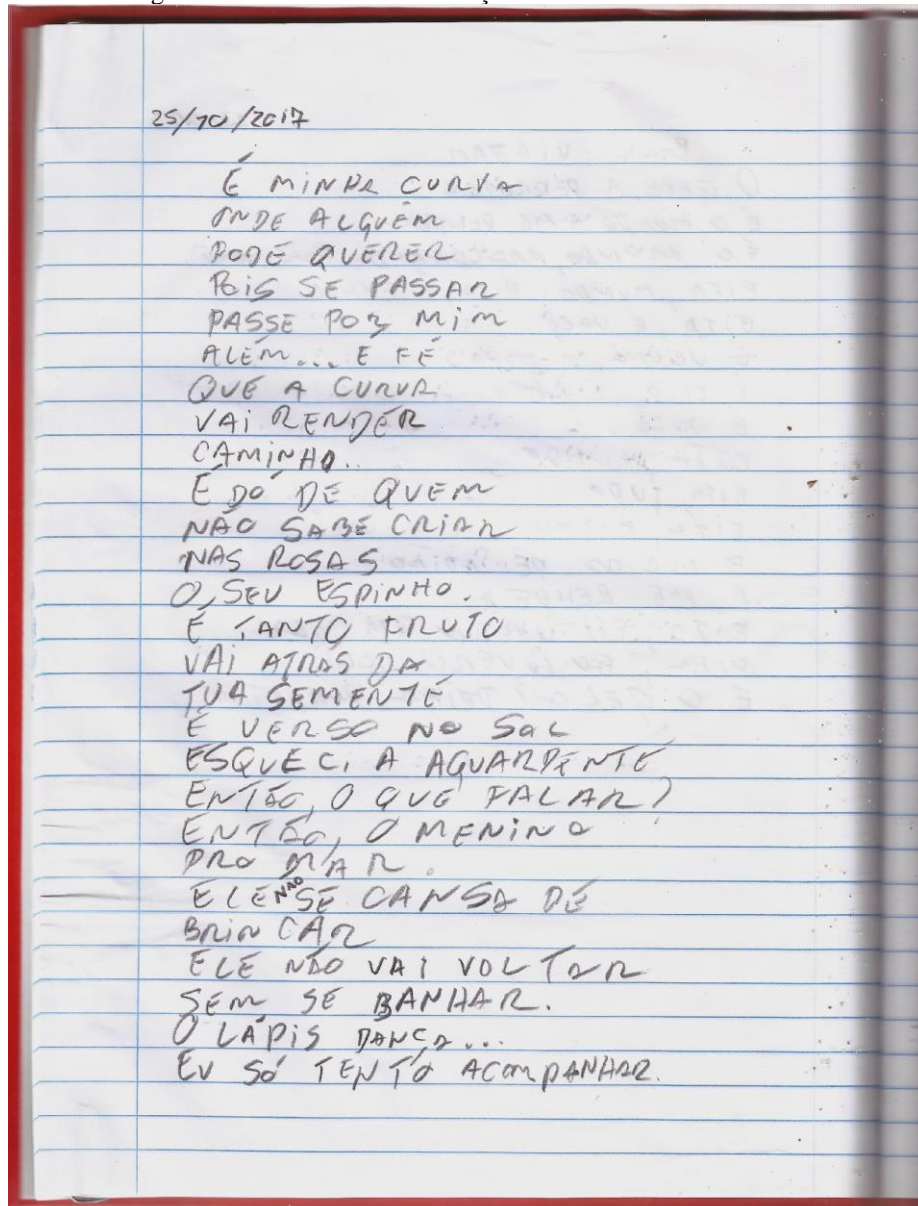 25/10/2017
É MINHA CURVA
ONDE ALGUÉM
PODE QUERER
POIS SE PASSAR
PASSE POR MIM
ALÉM... E FÉ
QUE A CURVA
VAI RENDER
CAMINHO..
É DÓ DE QUEM
NÃO SABE CRIAR
NAS ROSAS
O SEU ESPINHO.
É TANTO FRUTO
VAI ATRÁS DA
TUA SEMENTE
É VERSO NO SOL
ESQUECI A AGUARDENTE
ENTÃO, O QUE FALAR?
ENTÃO, O MENINO
PRO MAR.
ELE NÃO SE CANSA DE
BRINCAR
ELE NÃO VAI VOLTAR
SEM SE BANHAR.
O LÁPIS DANÇA...
EU SÓ TENTO ACOMPANHAR.